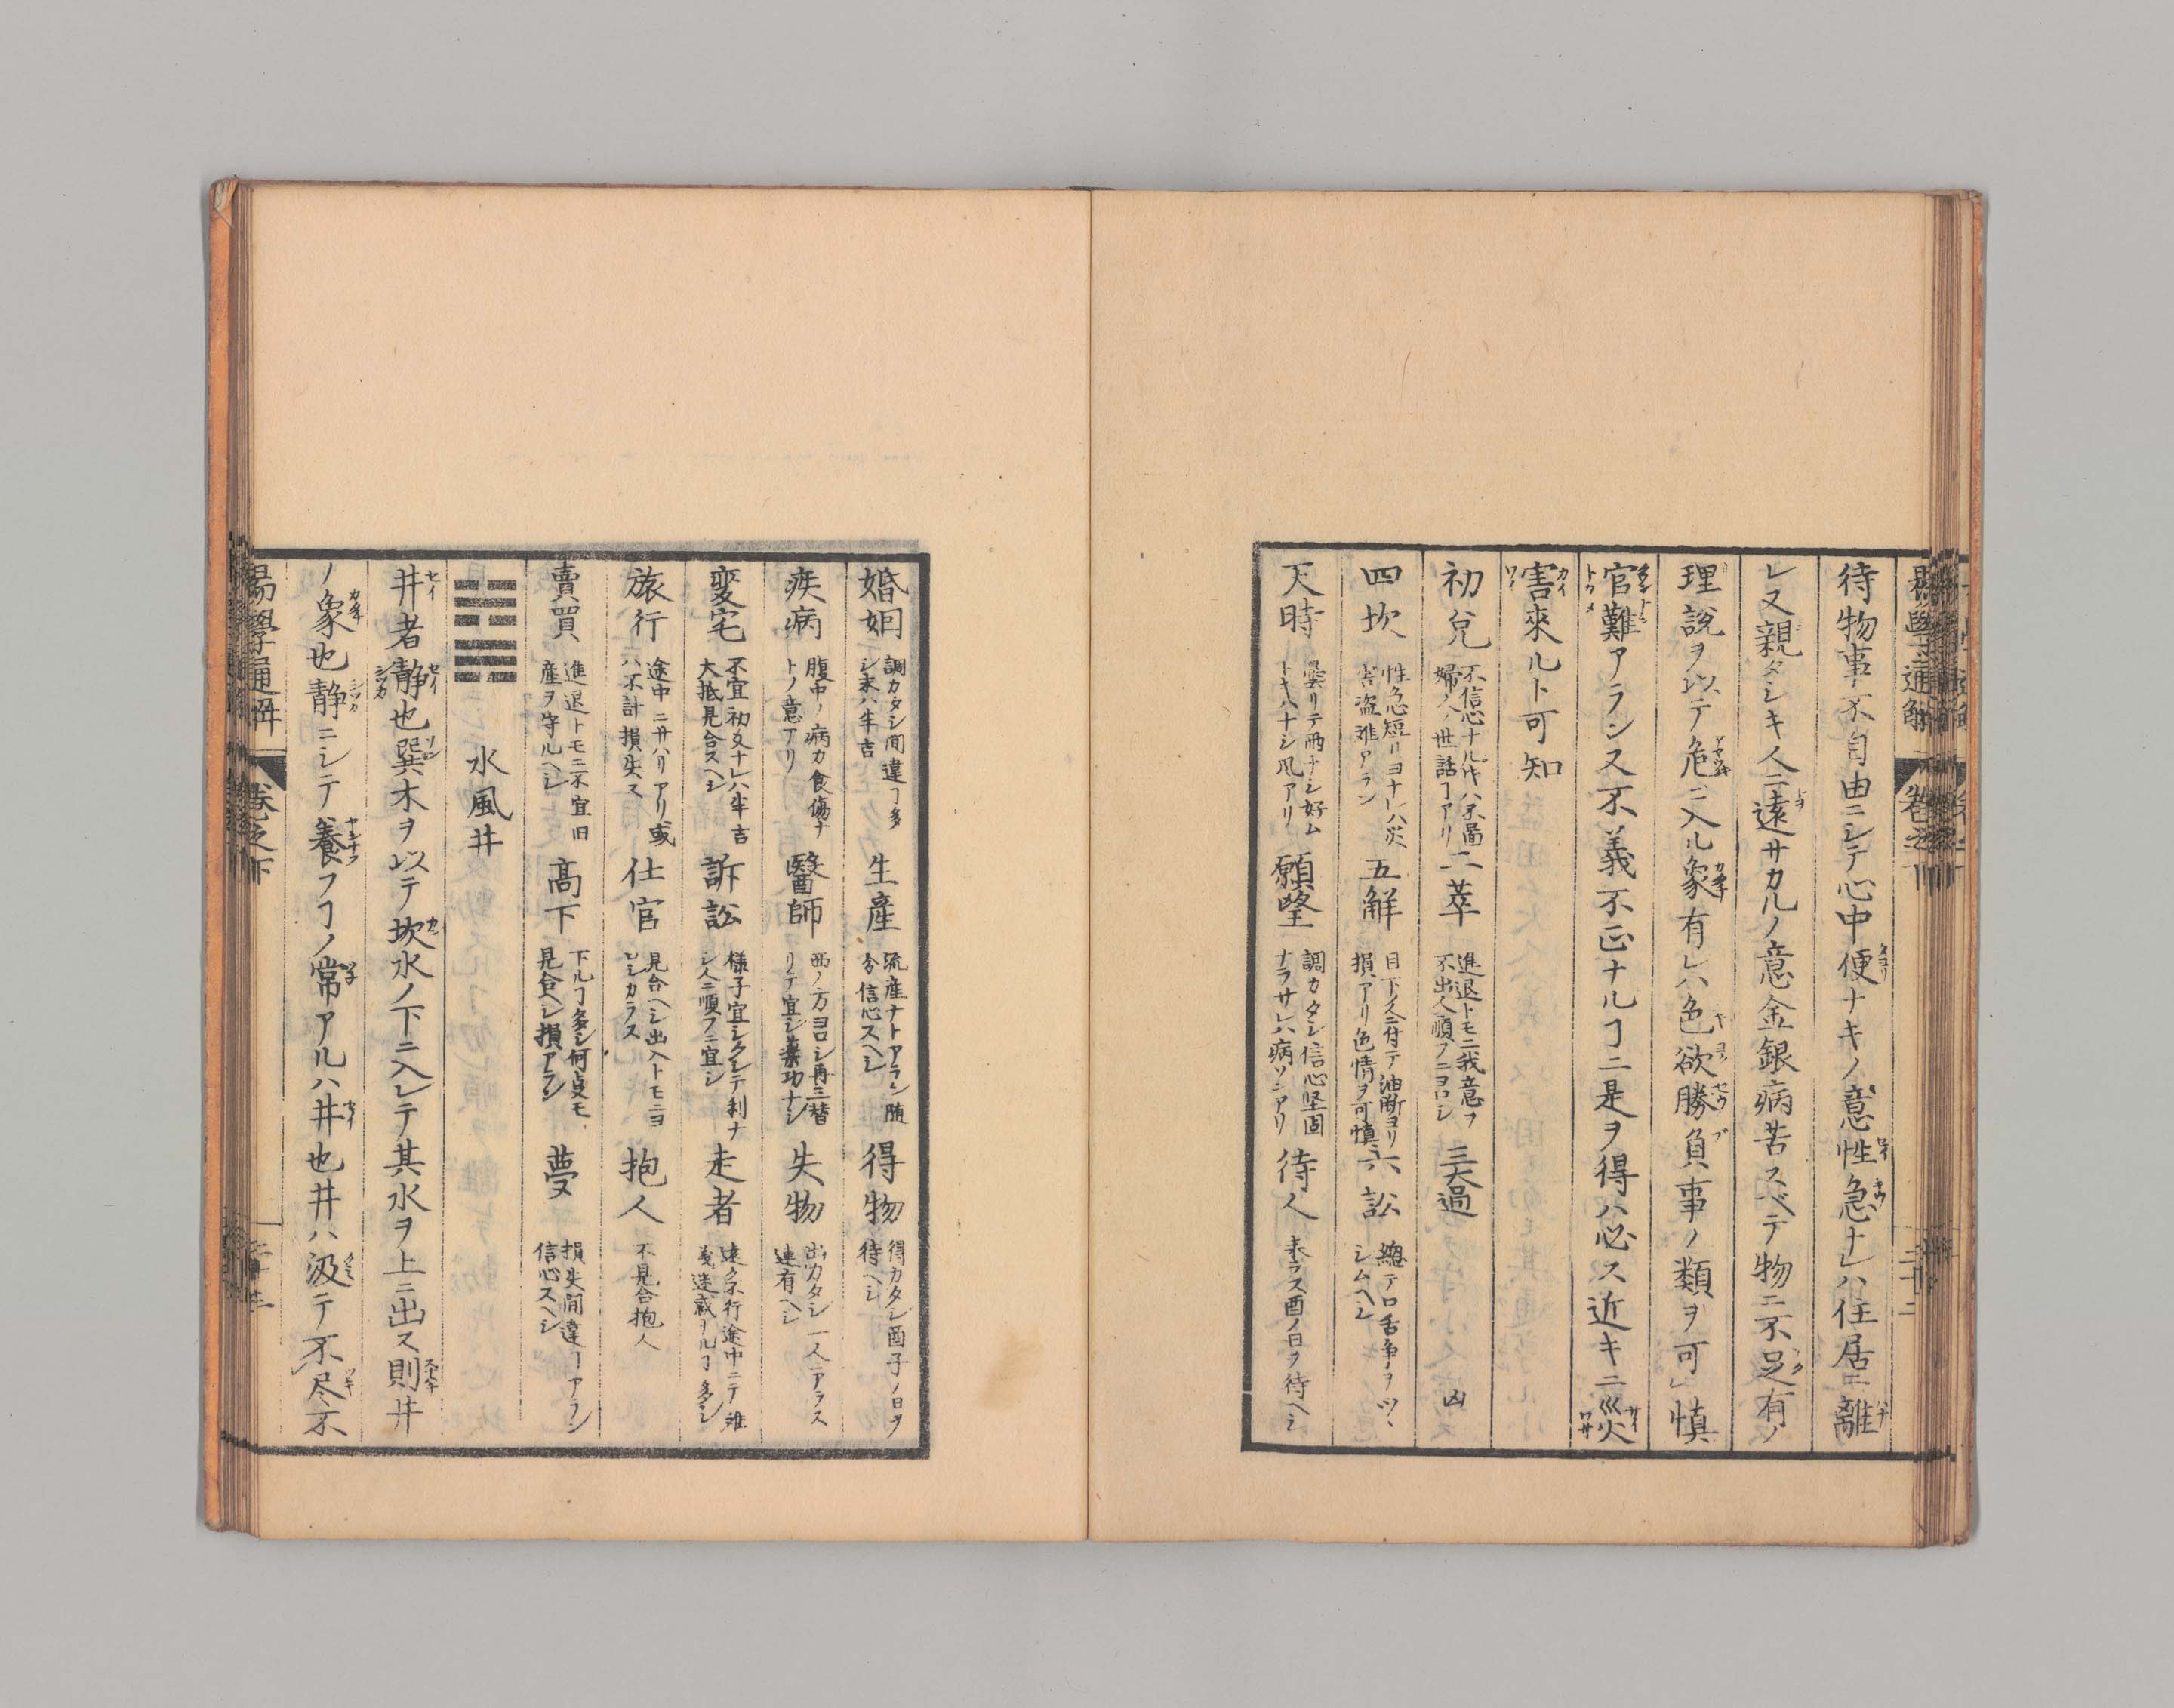 易學通解 巻之下 二十二
待物事不自由ニシテ心中便ナキノ意性急ナレハ住居ニ離
レ又親タシキ人ニ遠サカルノ意金銀病苦スベテ物ニ不足有ノ
理説ヲ以テ危ニ入ル象有レハ色欲勝負事ノ類ヲ可慎
官難アランス又不義不正ナルヿニ是ヲ得ハ必ス近キニ災
害來ルト可知
初兌 不信心ナルキハ不圖
婦人ノ世話ヿアリ
二萃 進退トモニ我意ヲ
不出人順フニヨロシ
三大過 凶
四坎 性急短リヨナレハ災
害盗難アラン
五觧 目下ノ人ニ付テ油断ヨリ
損アリ色情ヲ可慎
六訟 總テ口舌争ヲツヽ
シムヘシ
天時 曇リテ雨ナシ好ム
トキハナシ風アリ
願望 調カタシ信心堅固
ナラサレハ病ソンアリ
待人 来ラス酉ノ日ヲ待ヘシ
婚姻 調カタシ間違ヿ多
シ末ハ半吉
生産 流産ナトアラン随
分信心スヘシ
得物 得カタシ酉子ノ日ヲ
待ヘシ
疾病 腹中ノ病カ食傷ナ
トノ意アリ
醫師 西ノ方ヨロシ再三替
リテ宜シ薬功ナシ
失物 出カタシ一人ニアラス
連有ヘシ
変宅 不宜初爻ナレハ半吉
大抵見合スヘシ
訴訟 様子宜シクシテ利ナ
シ人ニ順フニ宜シ
走者 遠ク不行途中ニテ難
義迷惑ナルヿ多シ
旅行 途中ニサハリアリ或
ハ不計損失ス
仕官 見合ヘシ出入トモニヨ
ロシカラス
抱人 不見合抱人
賣買 進退トモニ不宜旧
産ヲ守ルヘシ
高下 下ルヿ多シ何㕝モ
見合ヘシ損アラン
夢 損失間違ヿアラン
信心スヘシ
水風井
井者静也巽木ヲ以テ坎水ノ下ニ入レテ其水ヲ上ニ出ス則井
ノ象也静ニシテ養フヿノ常アルハ井也井ハ汲テ不尽不
易學通解 巻之下